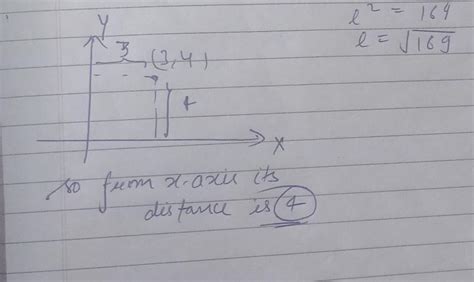 l² = 169
l = √169
Y
3
(3,4)
4
X
so from x-axis its
distance is 4